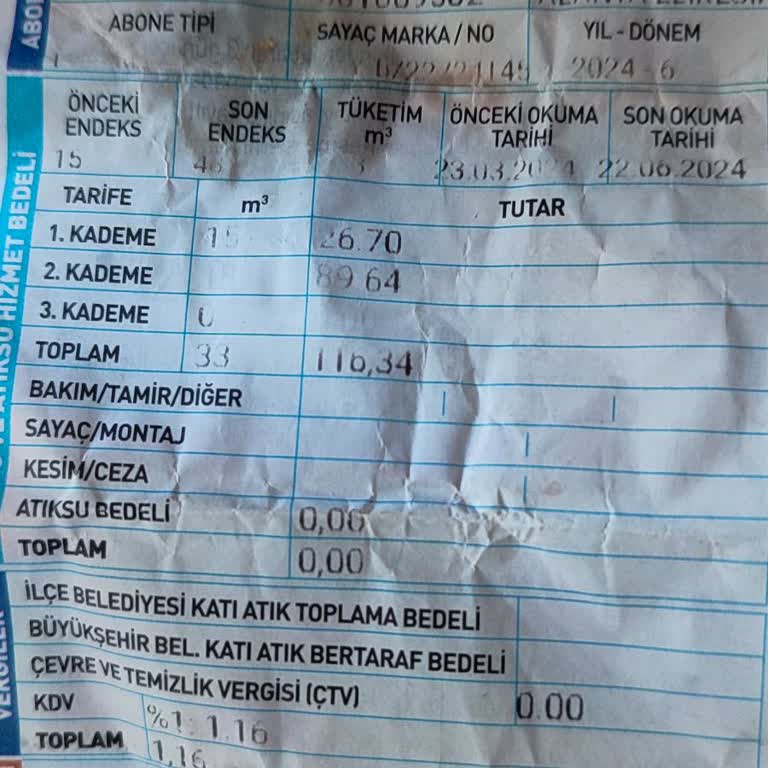 ABONE TİPİ SAYAÇ MARKA / NO YIL - DÖNEM
2024 - 6
ÖNCEKİ ENDEKS SON ENDEKS TÜKETİM m³ ÖNCEKİ OKUMA TARİHİ SON OKUMA TARİHİ
15 23.03.2024 22.06.2024
TARİFE m³ TUTAR
1. KADEME 15 26.70
2. KADEME 89 64
3. KADEME
TOPLAM 33 116,34
BAKIM/TAMİR/DİĞER
SAYAÇ/MONTAJ
KESİM/CEZA
ATIKSU BEDELİ 0,00
TOPLAM 0,00
İLÇE BELEDİYESİ KATI ATIK TOPLAMA BEDELİ
BÜYÜKŞEHİR BEL. KATI ATIK BERTARAF BEDELİ
ÇEVRE VE TEMİZLİK VERGİSİ (ÇTV) 0.00
KDV %1: 1.16
TOPLAM 1,16